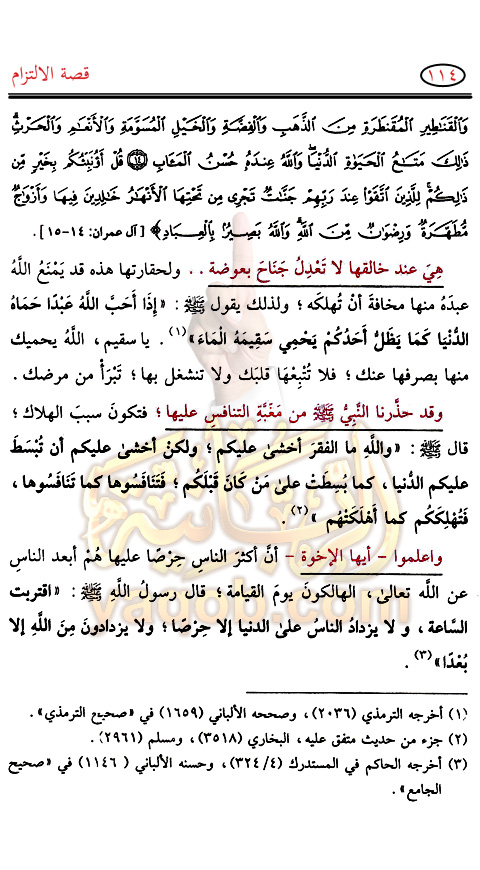 ١١٤
قصة الالتزام
وَٱلْقَنَٰطِيرِ ٱلْمُقَنطَرَةِ مِنَ ٱلذَّهَبِ وَٱلْفِضَّةِ وَٱلْخَيْلِ ٱلْمُسَوَّمَةِ وَٱلْأَنْعَٰمِ وَٱلْحَرْثِ ۗ
ذَٰلِكَ مَتَٰعُ ٱلْحَيَوٰةِ ٱلدُّنْيَا ۖ وَٱللَّهُ عِندَهُۥ حُسْنُ ٱلْمَـَٔابِ ﴿١٤﴾ قُلْ أَؤُنَبِّئُكُم بِخَيْرٍ مِّن
ذَٰلِكُمْ ۚ لِلَّذِينَ ٱتَّقَوْا۟ عِندَ رَبِّهِمْ جَنَّٰتٌ تَجْرِى مِن تَحْتِهَا ٱلْأَنْهَٰرُ خَٰلِدِينَ فِيهَا وَأَزْوَٰجٌ
مُّطَهَّرَةٌ وَرِضْوَٰنٌ مِّنَ ٱللَّهِ ۗ وَٱللَّهُ بَصِيرٌۢ بِٱلْعِبَادِ﴾ [آل عمران: ١٤-١٥] .
هِيَ عند خالقها لا تَعْدِلُ جَنَاحَ بعوضة . . ولحقارتها هذه قد يَمْنَعُ اللَّهُ
عبدَهُ منها مخافةَ أنْ تُهلكَه ؛ ولذلك يقول ﷺ : «إِذَا أَحَبَّ اللَّهُ عَبْدًا حَمَاهُ
الدُّنْيَا كَمَا يَظَلُّ أَحَدُكُمْ يَحْمِي سَقِيمَهُ الْمَاءَ»(١) . يا سقيم ، اللَّهُ يحميك
منها بصرفها عنك ؛ فلا تُتْبِعْهَا قلبَك ولا تنشغل بها ؛ تَبْرَأْ من مرضك .
وقد حذَّرنا النَّبِيُّ ﷺ من مَغَبَّةِ التنافسِ عليها ؛ فتكونَ سببَ الهلاك ؛
قال ﷺ : «واللَّهِ ما الفقرَ أخشىٰ عليكم ؛ ولكنْ أخشىٰ عليكم أن تُبْسَطَ
عليكم الدُّنيا ، كما بُسِطَتْ علىٰ مَنْ كَانَ قَبْلَكُم ؛ فَتَنَافَسُوها كما تَنَافَسُوها ،
فَتُهْلِكَكُم كما أَهْلَكَتْهُم »(٢) .
واعلموا - أيها الإخوة - أنَّ أكثرَ الناسِ حِرْصًا عليها هُمْ أبعد الناسِ
عن اللَّه تعالىٰ ، الهالكونَ يومَ القيامة ؛ قال رسولُ اللَّهِ ﷺ : «اقتربت
السَّاعة ، و لا يزدادُ الناسُ علىٰ الدنيا إلا حِرْصًا ؛ ولا يزدادونَ مِنَ اللَّهِ إلا
بُعْدًا»(٣) .
(١) أخرجه الترمذي (٢٠٣٦) ، وصححه الألباني (١٦٥٩) في «صحيح الترمذي» .
(٢) جزء من حديث متفق عليه ، البخاري (٣٥١٨) ، ومسلم (٢٩٦١) .
(٣) أخرجه الحاكم في المستدرك (٣٢٤/٤) ، وحسنه الألباني ( ١١٤٦) في «صحيح
الجامع» .
yaqob.com